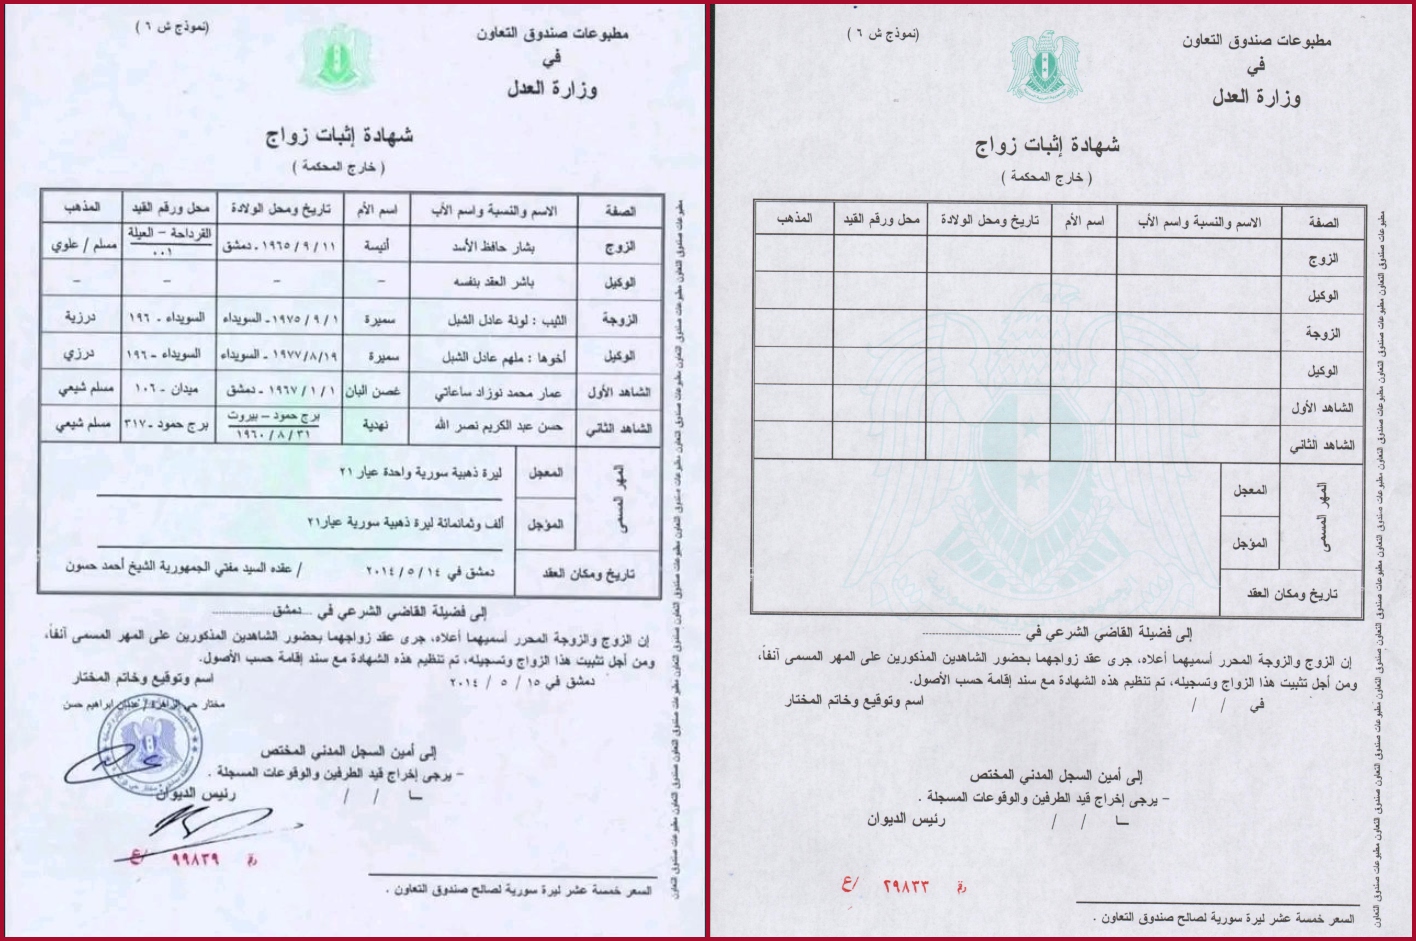 (نموذج ش ٦)
مطبوعات صندوق التعاون
في
وزارة العدل
شهادة إثبات زواج
( خارج المحكمة )
الصفة الاسم والنسبة واسم الأب اسم الأم تاريخ ومحل الولادة محل ورقم القيد المذهب
الزوج بشار حافظ الأسد أنيسة ١١ / ٩ / ١٩٦٥ - دمشق القرداحة - العيلة ٠٠١ مسلم / علوي
الوكيل باشر العقد بنفسه - - - -
الزوجة الثيب : لونة عادل الشبل سميرة ١ / ٩ / ١٩٧٥ - السويداء السويداء - ١٩٦ درزية
الوكيل أخوها : ملهم عادل الشبل سميرة ١٩٧٧/٨/١٩ - السويداء السويداء - ١٩٦ درزي
الشاهد الأول عمار محمد نوزاد ساعاتي غصن البان ١ / ١ / ١٩٦٧ - دمشق ميدان - ١٠٦ مسلم شيعي
الشاهد الثاني حسن عبد الكريم نصر الله نهدية برج حمود - بيروت ٣١ / ٨ / ١٩٦٠ برج حمود - ٣١٧ مسلم شيعي
المهر المسمى
المعجل ليرة ذهبية سورية واحدة عيار ٢١
المؤجل ألف وثمانمائة ليرة ذهبية سورية عيار٢١
تاريخ ومكان العقد دمشق في ١٤ / ٥ / ٢٠١٤ / عقده السيد مفتي الجمهورية الشيخ أحمد حسون
إلى فضيلة القاضي الشرعي في دمشق
إن الزوج والزوجة المحرر أسميهما أعلاه، جرى عقد زواجهما بحضور الشاهدين المذكورين على المهر المسمى آنفاً،
ومن أجل تثبيت هذا الزواج وتسجيله، تم تنظيم هذه الشهادة مع سند إقامة حسب الأصول.
دمشق في ١٥ / ٥ / ٢٠١٤ اسم وتوقيع وخاتم المختار
مختار حي الزاهرة / عدنان ابراهيم حسن
إلى أمين السجل المدني المختص
- يرجى إخراج قيد الطرفين والوقوعات المسجلة .
/ / رئيس الديوان
٩٩٨٣٩ /ع
السعر خمسة عشر ليرة سورية لصالح صندوق التعاون .
مطبوعات صندوق التعاون مطبوعات صندوق التعاون مطبوعات صندوق التعاون
(نموذج ش ٦)
مطبوعات صندوق التعاون
في
وزارة العدل
شهادة إثبات زواج
( خارج المحكمة )
الصفة الاسم والنسبة واسم الأب اسم الأم تاريخ ومحل الولادة محل ورقم القيد المذهب
الزوج
الوكيل
الزوجة
الوكيل
الشاهد الأول
الشاهد الثاني
المهر المسمى
المعجل
المؤجل
تاريخ ومكان العقد
إلى فضيلة القاضي الشرعي في
إن الزوج والزوجة المحرر أسميهما أعلاه، جرى عقد زواجهما بحضور الشاهدين المذكورين على المهر المسمى آنفاً،
ومن أجل تثبيت هذا الزواج وتسجيله، تم تنظيم هذه الشهادة مع سند إقامة حسب الأصول.
في / / اسم وتوقيع وخاتم المختار
إلى أمين السجل المدني المختص
- يرجى إخراج قيد الطرفين والوقوعات المسجلة .
/ / رئيس الديوان
٢٩٨٣٣ /ع
السعر خمسة عشر ليرة سورية لصالح صندوق التعاون .
مطبوعات صندوق التعاون مطبوعات صندوق التعاون مطبوعات صندوق التعاون